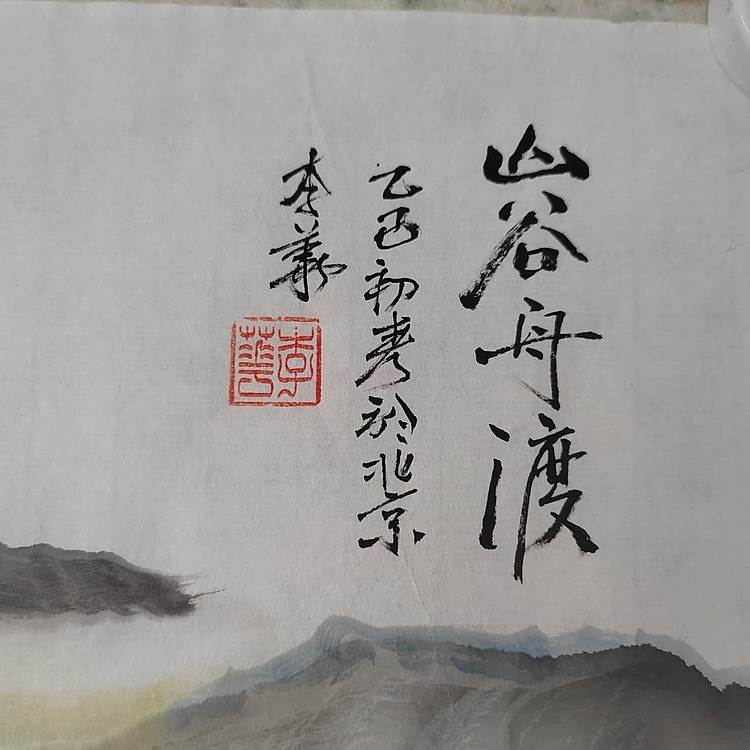 山谷舟渡
乙巳初春於北京
李
李